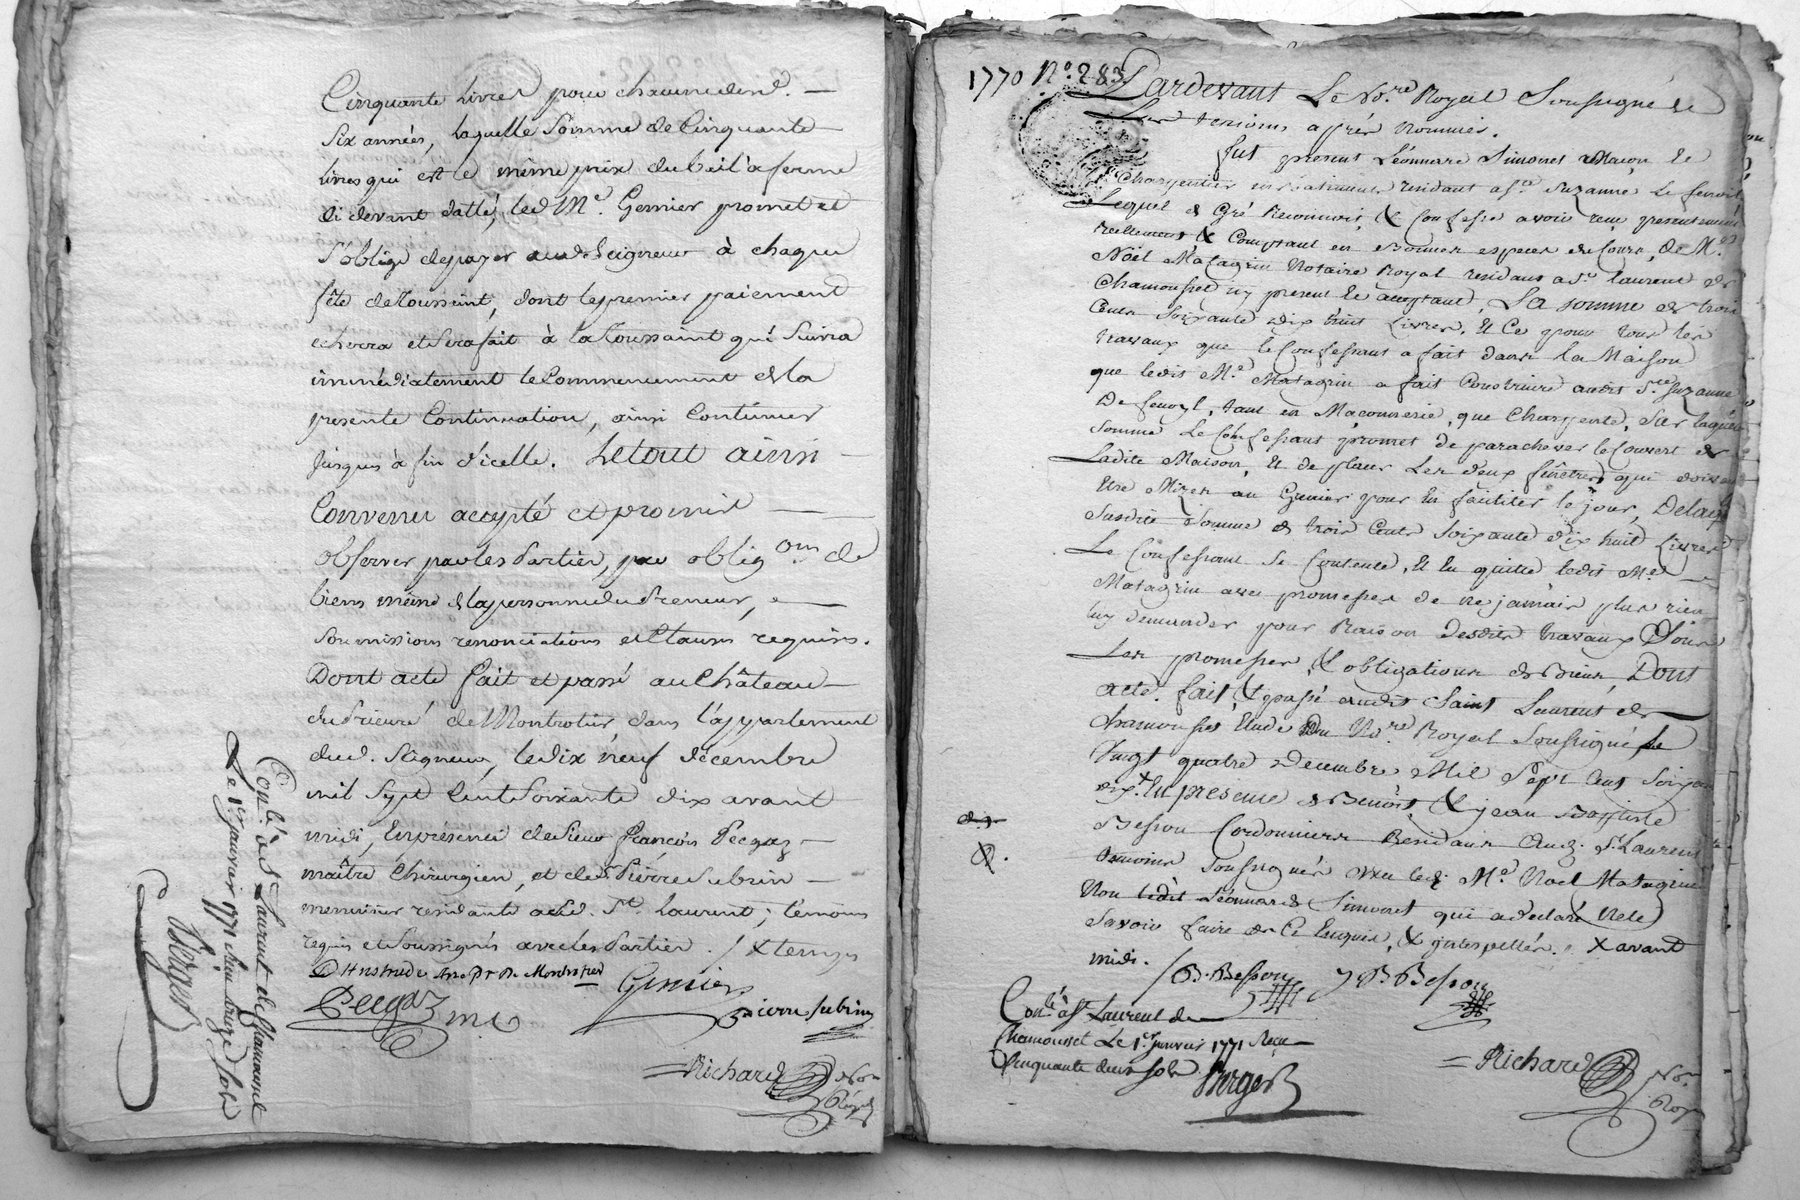 Cinquante Livres pour chacune desd.
Six années, laquelle Somme de Cinquante
livres qui est le même prix du bail à ferme
ci devant datté, led Me. Gernier promet et
s'oblige de payer aud. Seigneur à chaque
fête de Toussaint, dont le premier paiement
echerra et sera fait à la Toussaint qui suivra
immédiatement le Commencement de la
presente Continuation, ainsi Continuer
jusques à fin d'icelle. Le tout ainsi
Convenu accepté et promis
observer par les Parties, par obligons. de
biens même de la personne du Preneur,
soumissions renonciations et Clauses requises.
Dont acte fait et passé au Château
du Prieuré de Montrotier dans l'appartement
dud. Seigneur, le dix neuf décembre
mil Sept Cent Soixante dix avant
midi, En présence de Sieur François Pecqaz
maître Chirurgien, et de Sr. Pierre Subrin
menuisier residants aud. St. Laurent, témoins
requis et Soussignés avec les Parties. / X temps
Pr. de Montrotier
Gernier
Pecqaz
pierre subrin
Richard
Nore
Royal
Conlé. à St. Laurent de Chamousset
Le 1er janvier 1771 Reçu treize sols
Berger
1770 No. 283.
Pardevant Le Nore. Royal Soussigné &
Les temoins après nommés.
fut present Léonnard Simonet Maçon &
Charpentier en batiments residant à Ste. Suzanne Le fenoil,
Lequel de Gré Reconnoit, & Confesse avoir reçu presentement
reellement, & Comptant en Bonnes especes de Cours, de Me.
Noël Matagrin Notaire Royal residant à St. Laurent de
Chamousset icy present & acceptant, La somme de trois
Cents Soixante dix huit Livres, Et Ce pour tous les
travaux que le Confessant a fait dans la Maison
que ledit Me. Matagrin a fait Construire audit Ste. Suzanne
De fenoyl, tant en Maçonnerie, que Charpente, Sur laquelle
somme Le Confessant promet de parachever le Couvert de
Ladite Maison, Et de placer Les deux fenêtres qui doivent
Etre Mises au Grenier pour En faciliter le jour, De laq.
Susdite Somme de trois Cents Soixante dix huit Livres
Le Confessant se Contente, Et En quitte ledit Me.
Matagrin avec promesses de ne jamais plus rien
luy demander pour Raison desdits travaux
Les promesses, & obligations de Biens, Dont
acte. fait, & passé audit Saint Laurent de
Chamousset Etude Du Nore. Royal Soussigné Le
Vingt quatre Decembre Mil Sept Cent Soixante
dix. En presence de Benoît, & jean Baptiste
Besson Cordonniers Residants Aud. St. Laurent
temoins Soussignés avec ledt. Me. Noël Matagrin
Non ledit Léonnard Simonet qui a declaré Ne le
Savoir faire de Ce Enquis, & interpellé. X avant
midi. /
B. Besson
J. B. Besson
Conlé. à St. Laurent de
Chamousset Le 1er Janvier 1771 Reçu
Cinquante deux sols
Berger
Richard
Nore
Roy